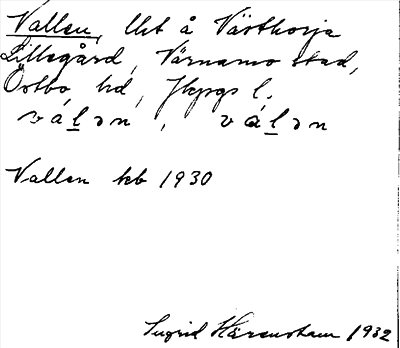 Vallen, lht å Västhorja
Lillegård, Värnamo stad,
Östbo hd, Jkpgs l.
vál̲ən, vál̲ən
Vallen kb 1930
Ingrid Härenstam 1932